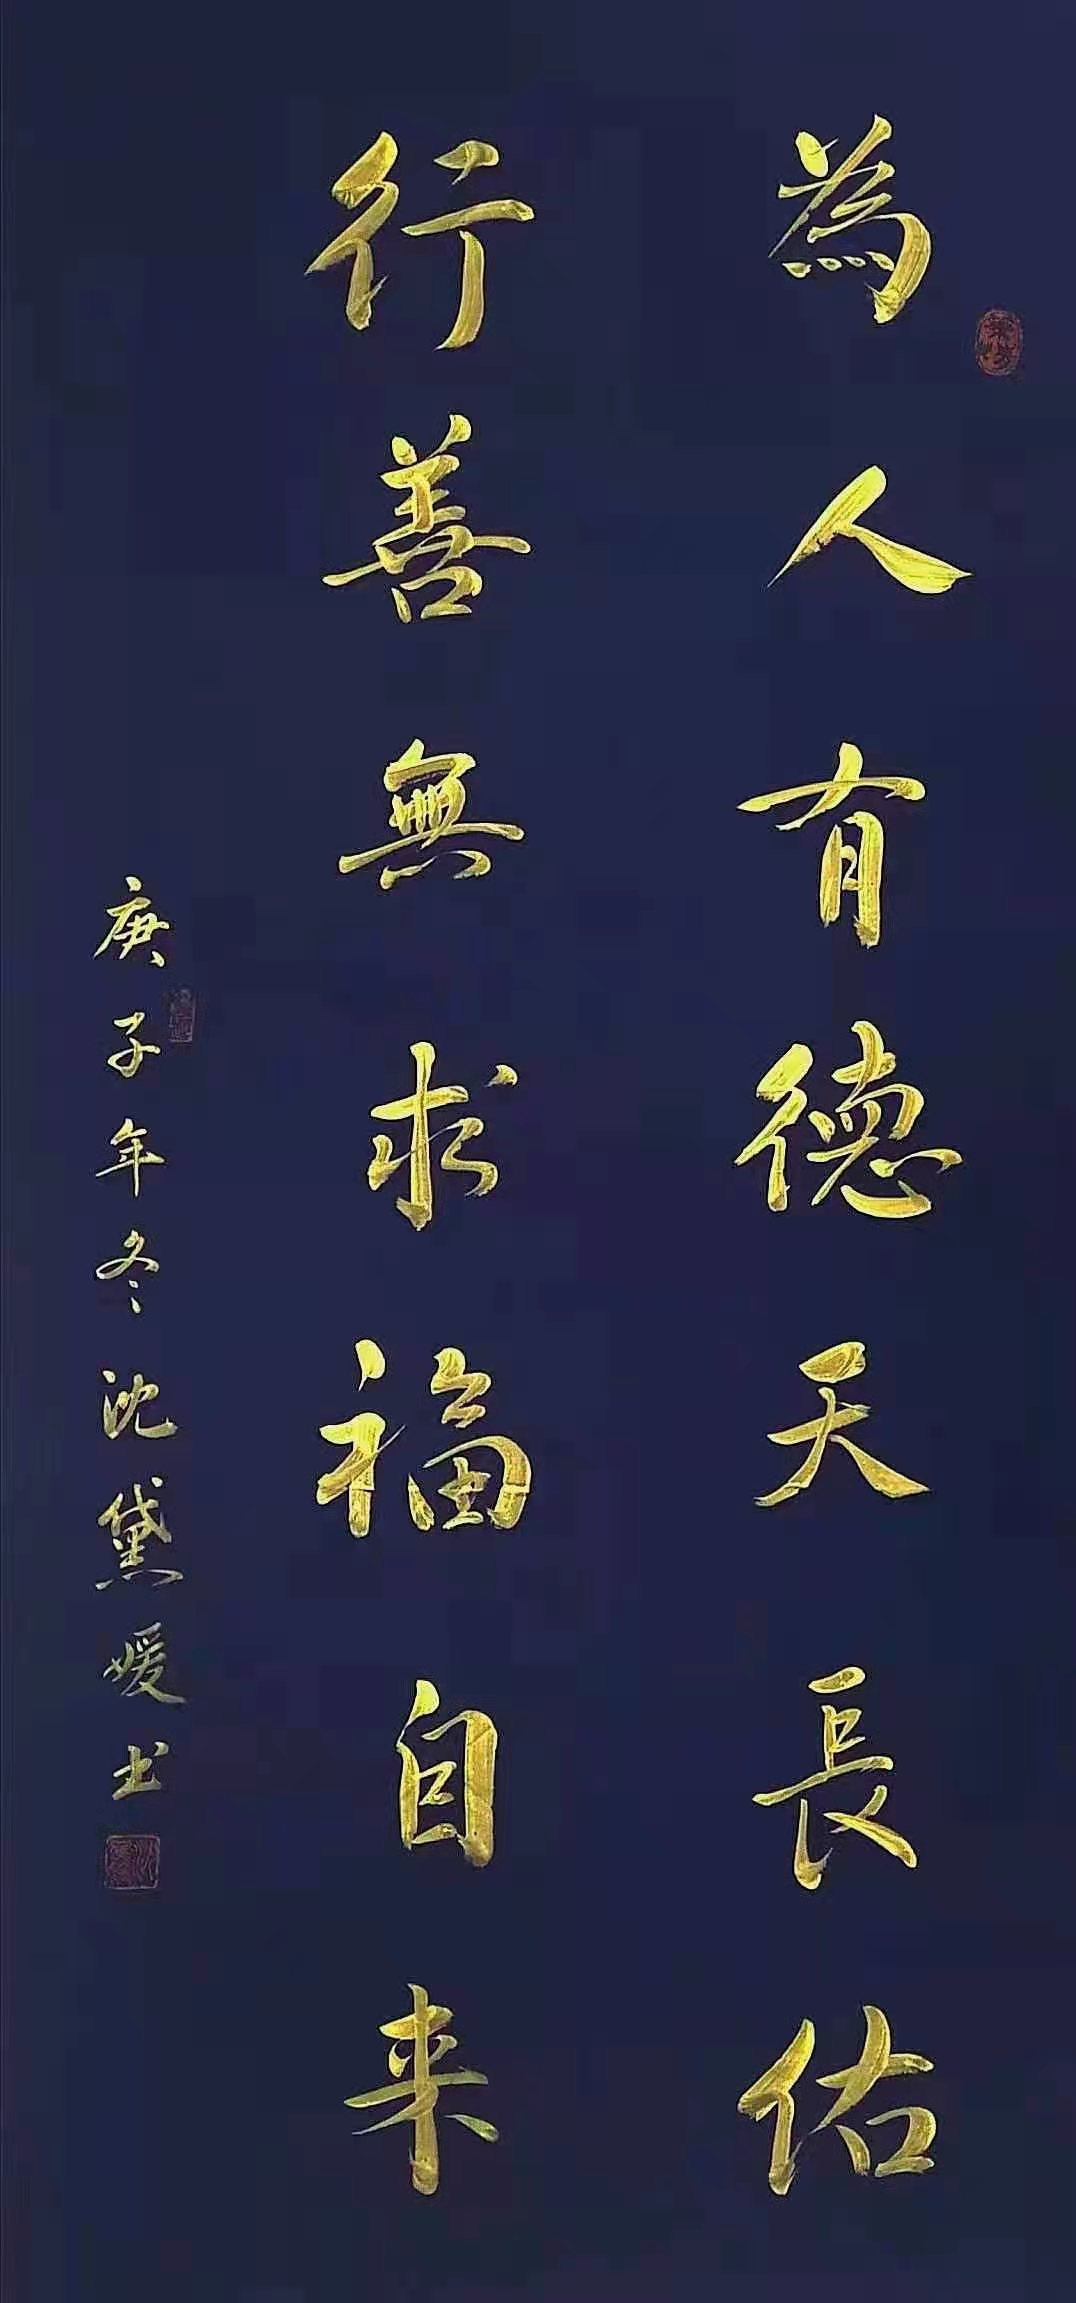 為人有德天長佑
行善無求福自来
庚子年冬沈黛媛书